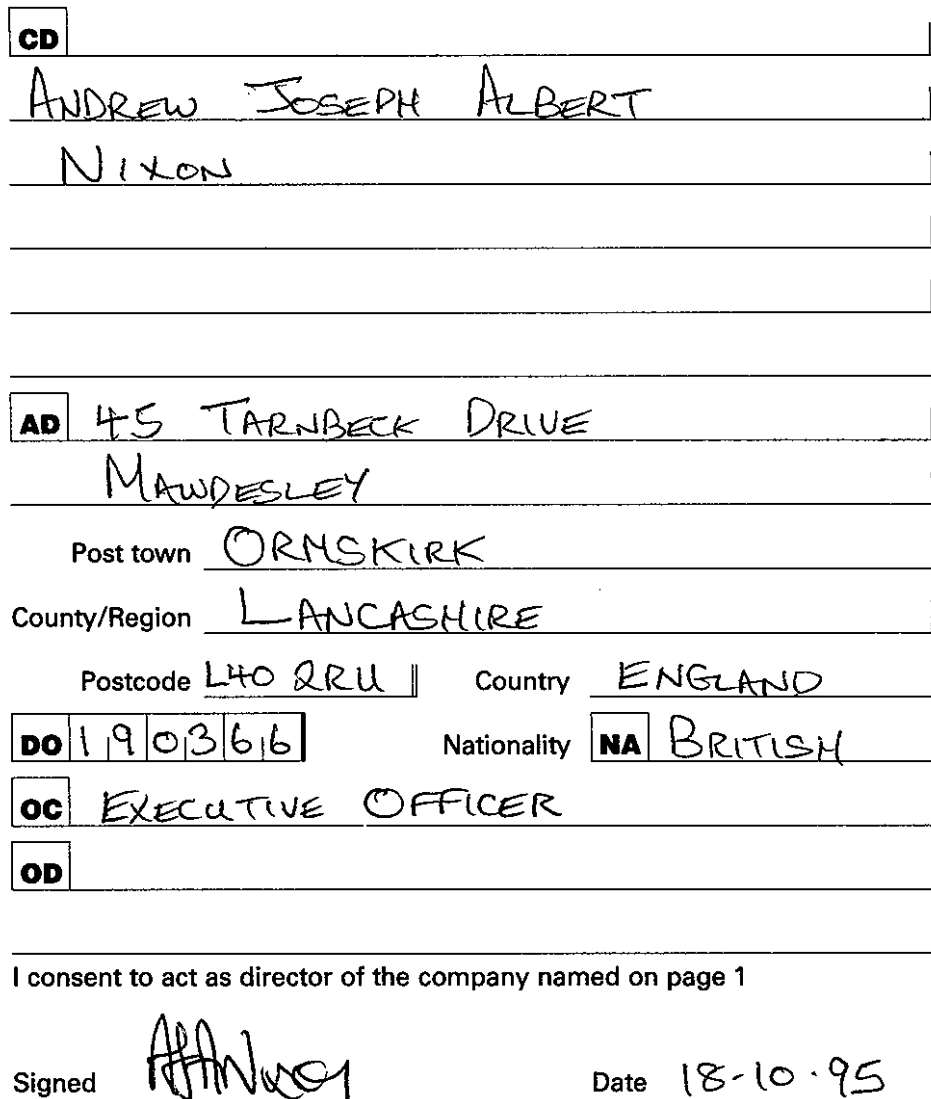 CD
ANDREW JOSEPH ALBERT
NIXON
AD 45 TARNBECK DRIVE
MAWDESLEY
Post town ORMSKIRK
County/Region LANCASHIRE
Postcode L40 2RU Country ENGLAND
DO 190366 Nationality NA BRITISH
OC EXECUTIVE OFFICER
OD
I consent to act as director of the company named on page 1
Signed Date 18-10-95